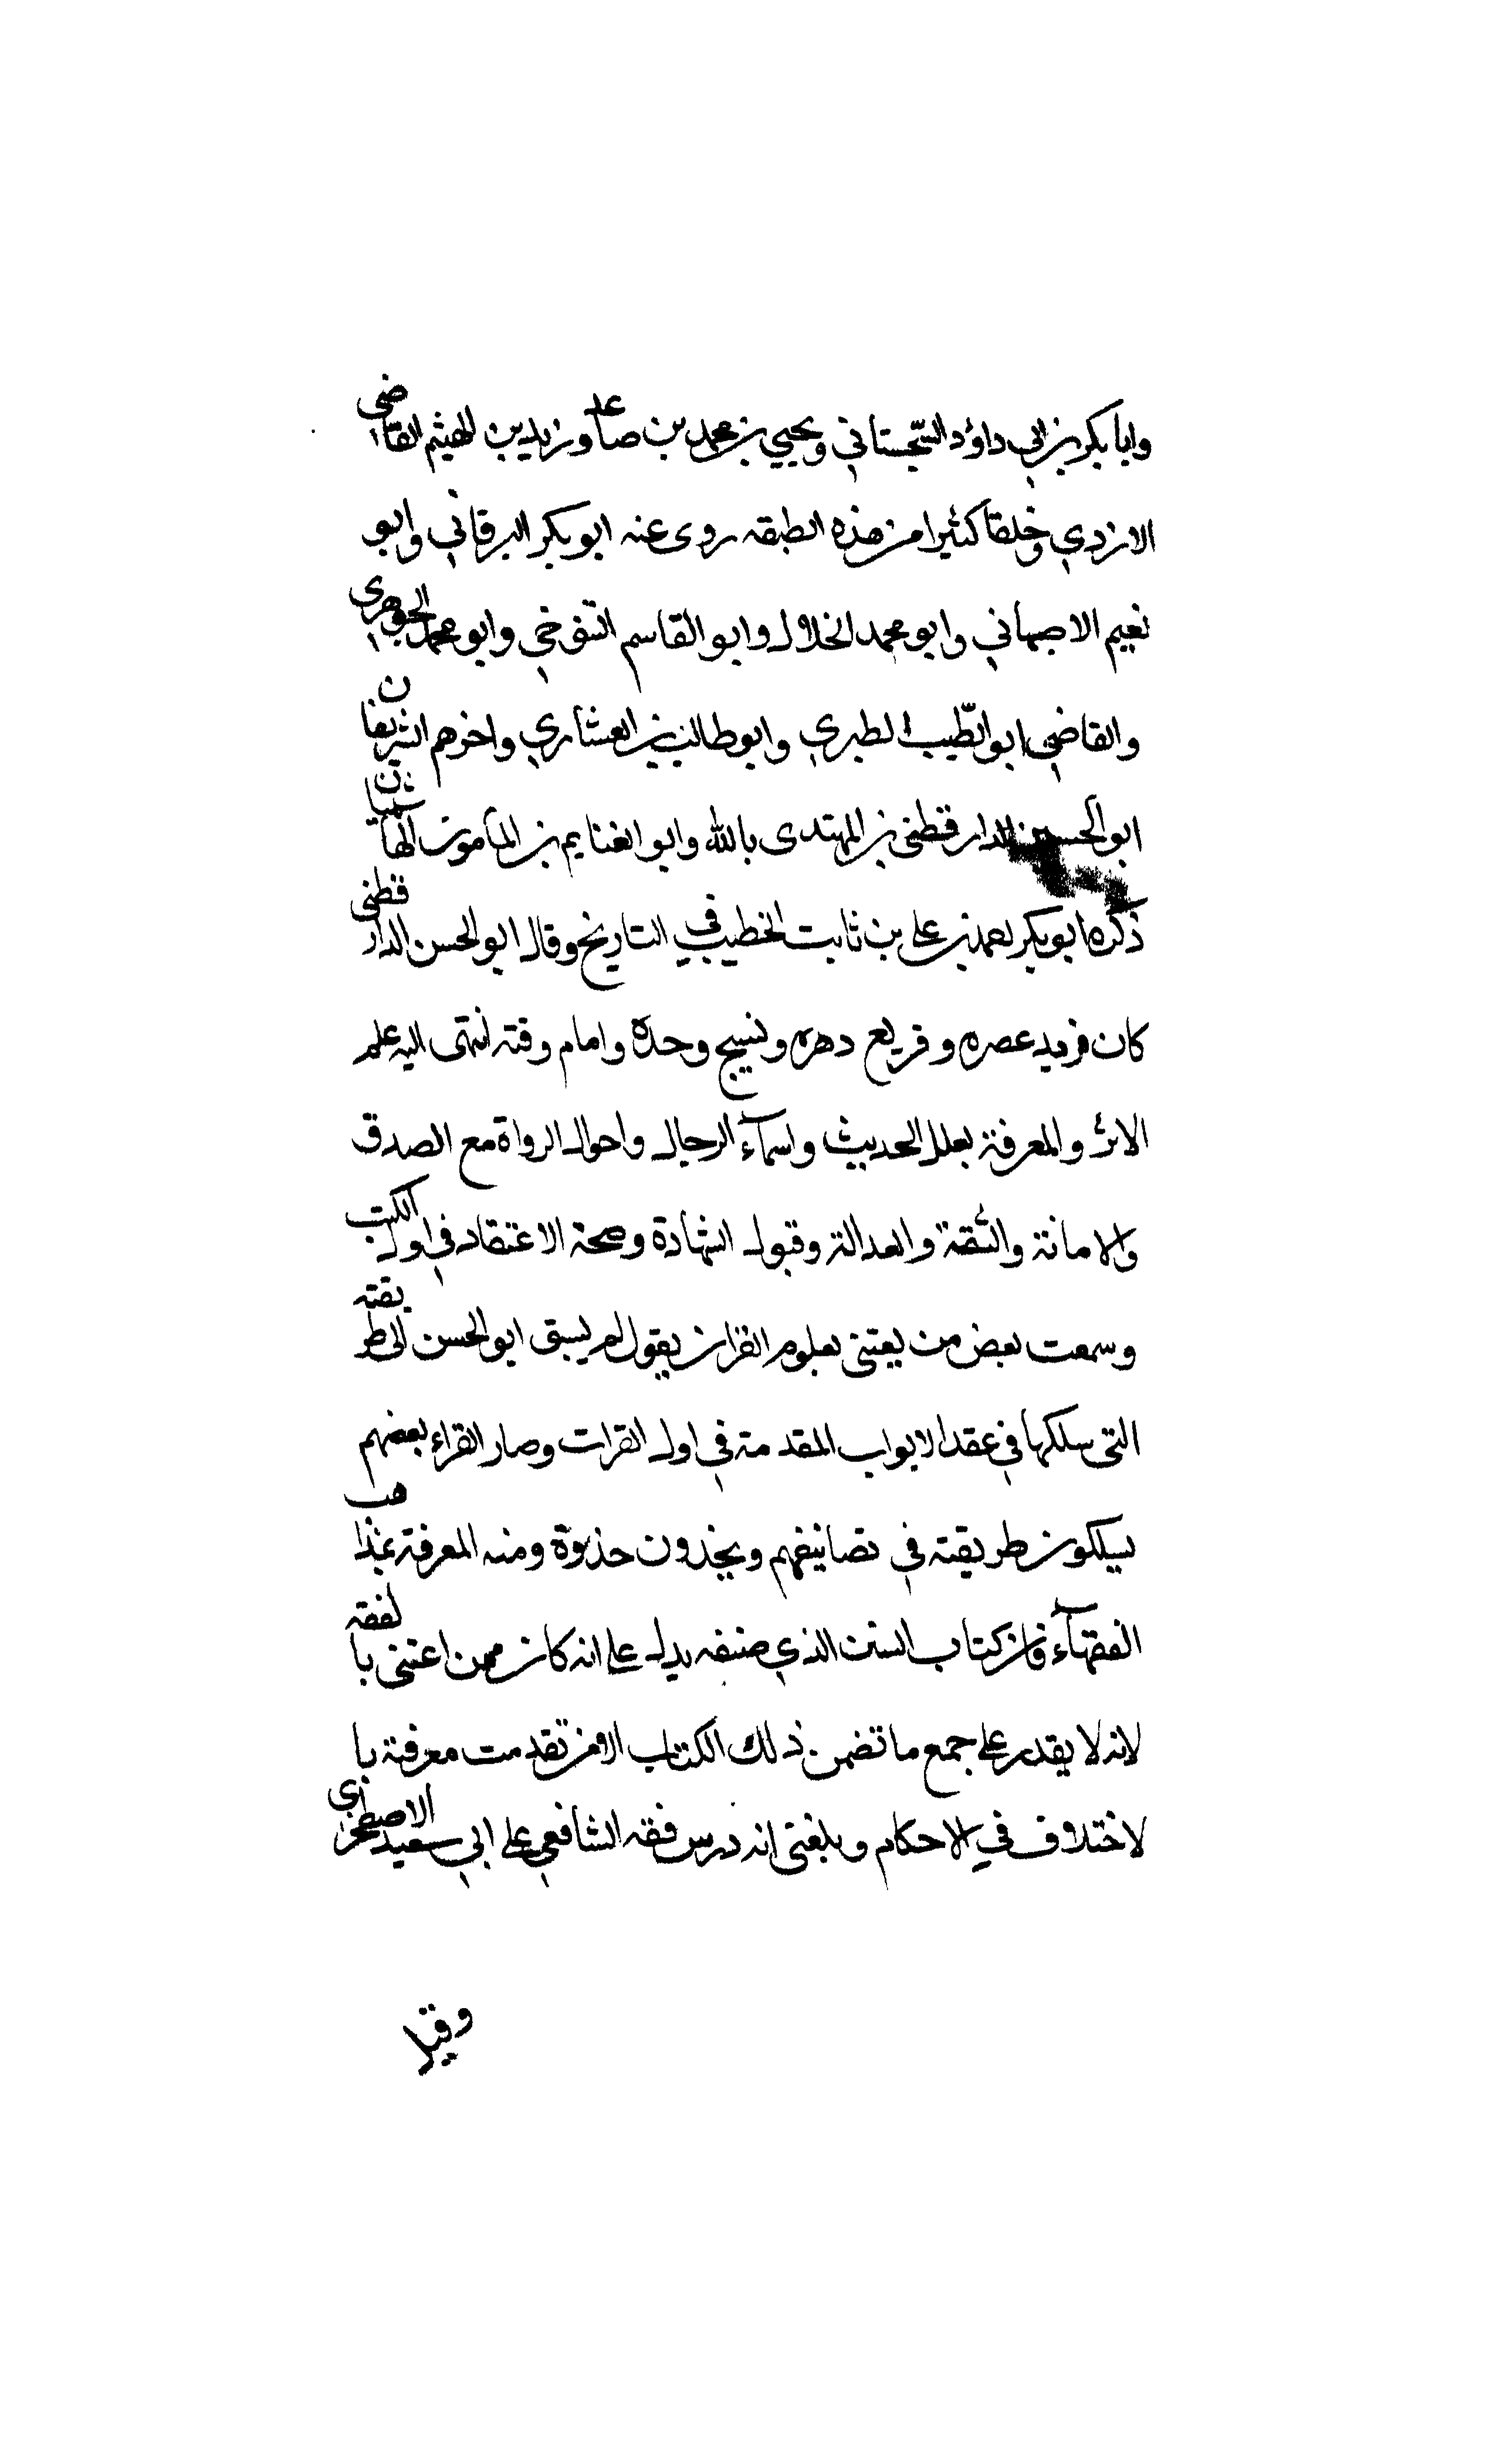 وابا بكر بن ابي داؤد السّجستاني ويحيي بن محمد بن صاعد وزيد بن الهيثم القاضي
الازدي وخلقاً كثيرا من هذه الطبقه روى عنه ابو بكر البرقاني وابو
نعيم الاصبهاني وابو محمد الخلال وابو القاسم التنوخي وابو محمد الجوهري
والقاضي ابو الطّيب الطبري وابو طالب بن العشاري واخرهم الشريفان
ابو الحسين الدارقطنى بن المهتدى بالله وابو الغنايم بن المأمون الهاشميان
ذكره ابو بكر احمد بن على بن ثابت الخطيب في التاريخ وقال ابو الحسن الدارقطنى
كان فريد عصره وقريع دهره ونسيج وحده وامام وقته انتهى اليه علم
الاثر والمعرفة بعلل الحديث واسمآء الرجال واحوال الرواة مع الصدق
والامانة والثقة والعدالة وقبول الشهادة وصحة الاعتقاد في اول الكتب
وسمعت بعض من يعتنى بعلوم القران يقول لم يسبق ابو الحسن الى طريقته
التى سلكها في عقد الابواب المقدمة في اول القرات وصار القراء بعضهم
يسلكون طريقته في تصانيفهم ويخذون حذوة ومنه المعرفة بمذاهب
الفقهآء فان كتاب السنن الذي صنفه يدل على انه كان ممن اعتنى بالفقه
لانه لا يقدر على جمع ما تضمن ذلك الكتاب الا من تقدمت معرفة با
لاختلاف في الاحكام وبلغنى انه درس فقه الشافعي على ابي سعيد الاصطخري
وقيل